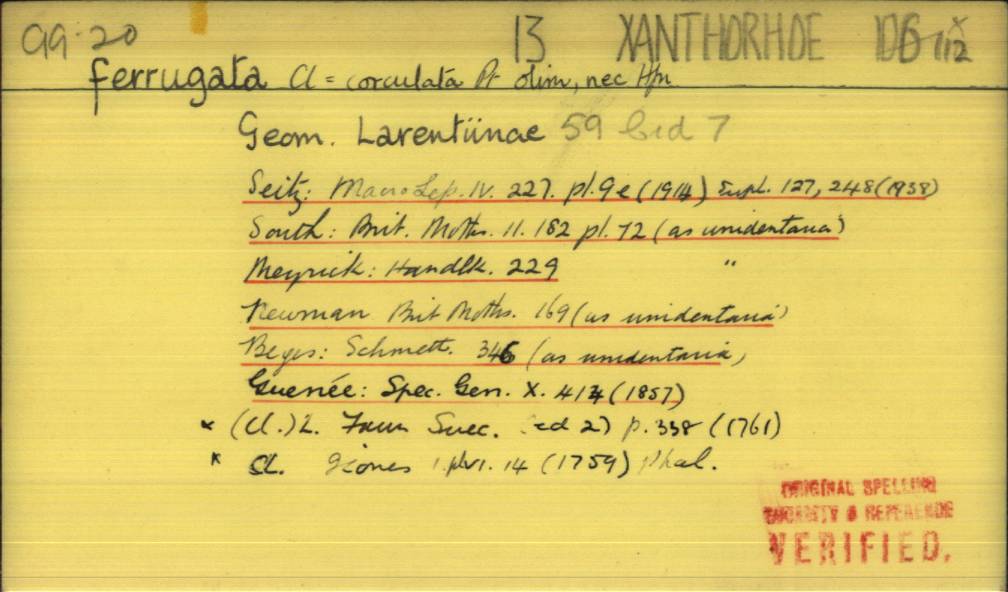 99.20 13 XANTHORHOE 106 x 112
ferrugata Cl = corculata Pr olim, nec Hfn
Geom. Larentiinae 59 bid 7
Seitz: Macro Lep. IV. 227. pl. 9e (1914) Supl. 127, 248 (1938)
South: Brit. Moths. II. 182 pl. 72 (as unidentaria)
Meyrick: Handbk. 229 "
Newman Brit Moths. 169 (as unidentaria)
Berges: Schmett. 346 (as unidentaria)
Guenée: Spec. Gen. X. 414 (1857)
x (Cl.) L. Faun Suec. (ed 2) p. 338 (1761)
x Cl. Icones 1. pl. VI. 14 (1759) Phal.
ORIGINAL SPELLING
AUTHORITY & REFERENCE
VERIFIED.